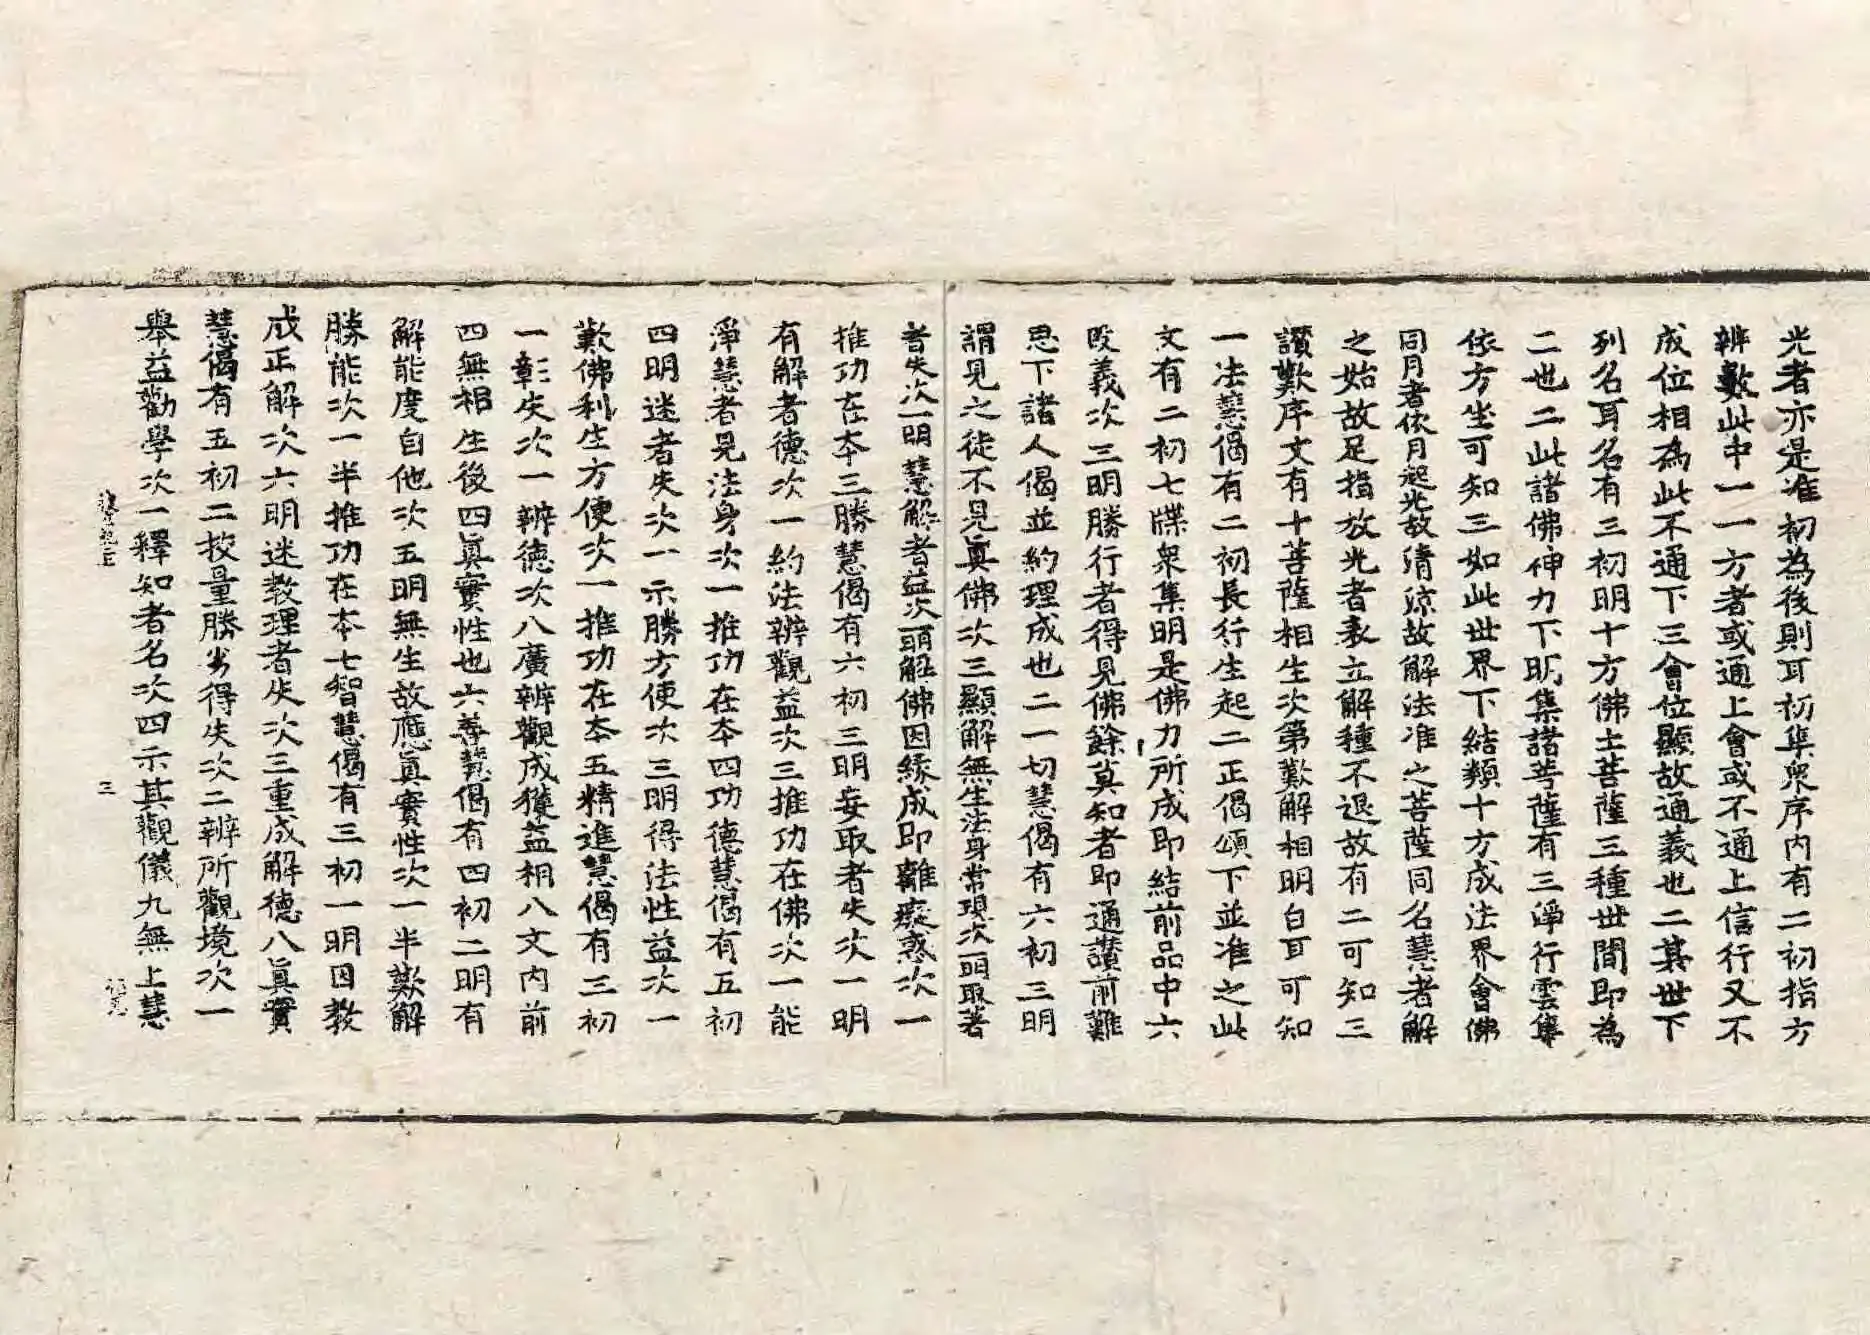 光者亦是准初為後則耳初集衆序內有二初指方
辨數此中一一方者或通上會或不通上信行又不
成位相為此不通下三會位顯故通義也二其世下
列名耳名有三初明十方佛土菩薩三種世間即為
二也二此諸佛神力下明集諸菩薩有三淨行雲集
依方坐可知三如此世界下結類十方成法界會佛
同月者依月起光故清涼故解法准之菩薩同名慧者解
之始故足指放光者表立解種不退故有二可知三
讚歎序文有十菩薩相生次第歎解相明白耳可知
一法慧偈有二初長行生起二正偈頌下並准之此
文有二初七牒衆集明是佛力所成即結前品中六
段義次三明勝行者得見佛餘莫知者即通讃前難
思下諸人偈並約理成也二一切慧偈有六初三明
謂見之徒不見真佛次三顯解無生法身常現次一明取著
者失次一明慧解者益次一明解佛因緣成即離癡惑次一
推功在本三勝慧偈有六初三明妄取者失次一明
有解者德次一約法辨觀益次三推功在佛次一能
淨慧者見法身次一推功在本四功德慧偈有五初
四明迷者失次一示勝方便次三明得法性益次一
歎佛利生方便次一推功在本五精進慧偈有三初
一彰失次一辨德次八廣辨觀成獲益相八文內前
四無相生後四真實性也六善慧偈有四初二明有
解能度自他次五明無生故應真實性次一半歎解
勝能次一半推功在本七智慧偈有三初一明因教
成正解次六明迷教理者失次三重成解德八真實
慧偈有五初二挍量勝劣得失次二辨所觀境次一
舉益勸學次一釋知者名次四示其觀儀九無上慧
三